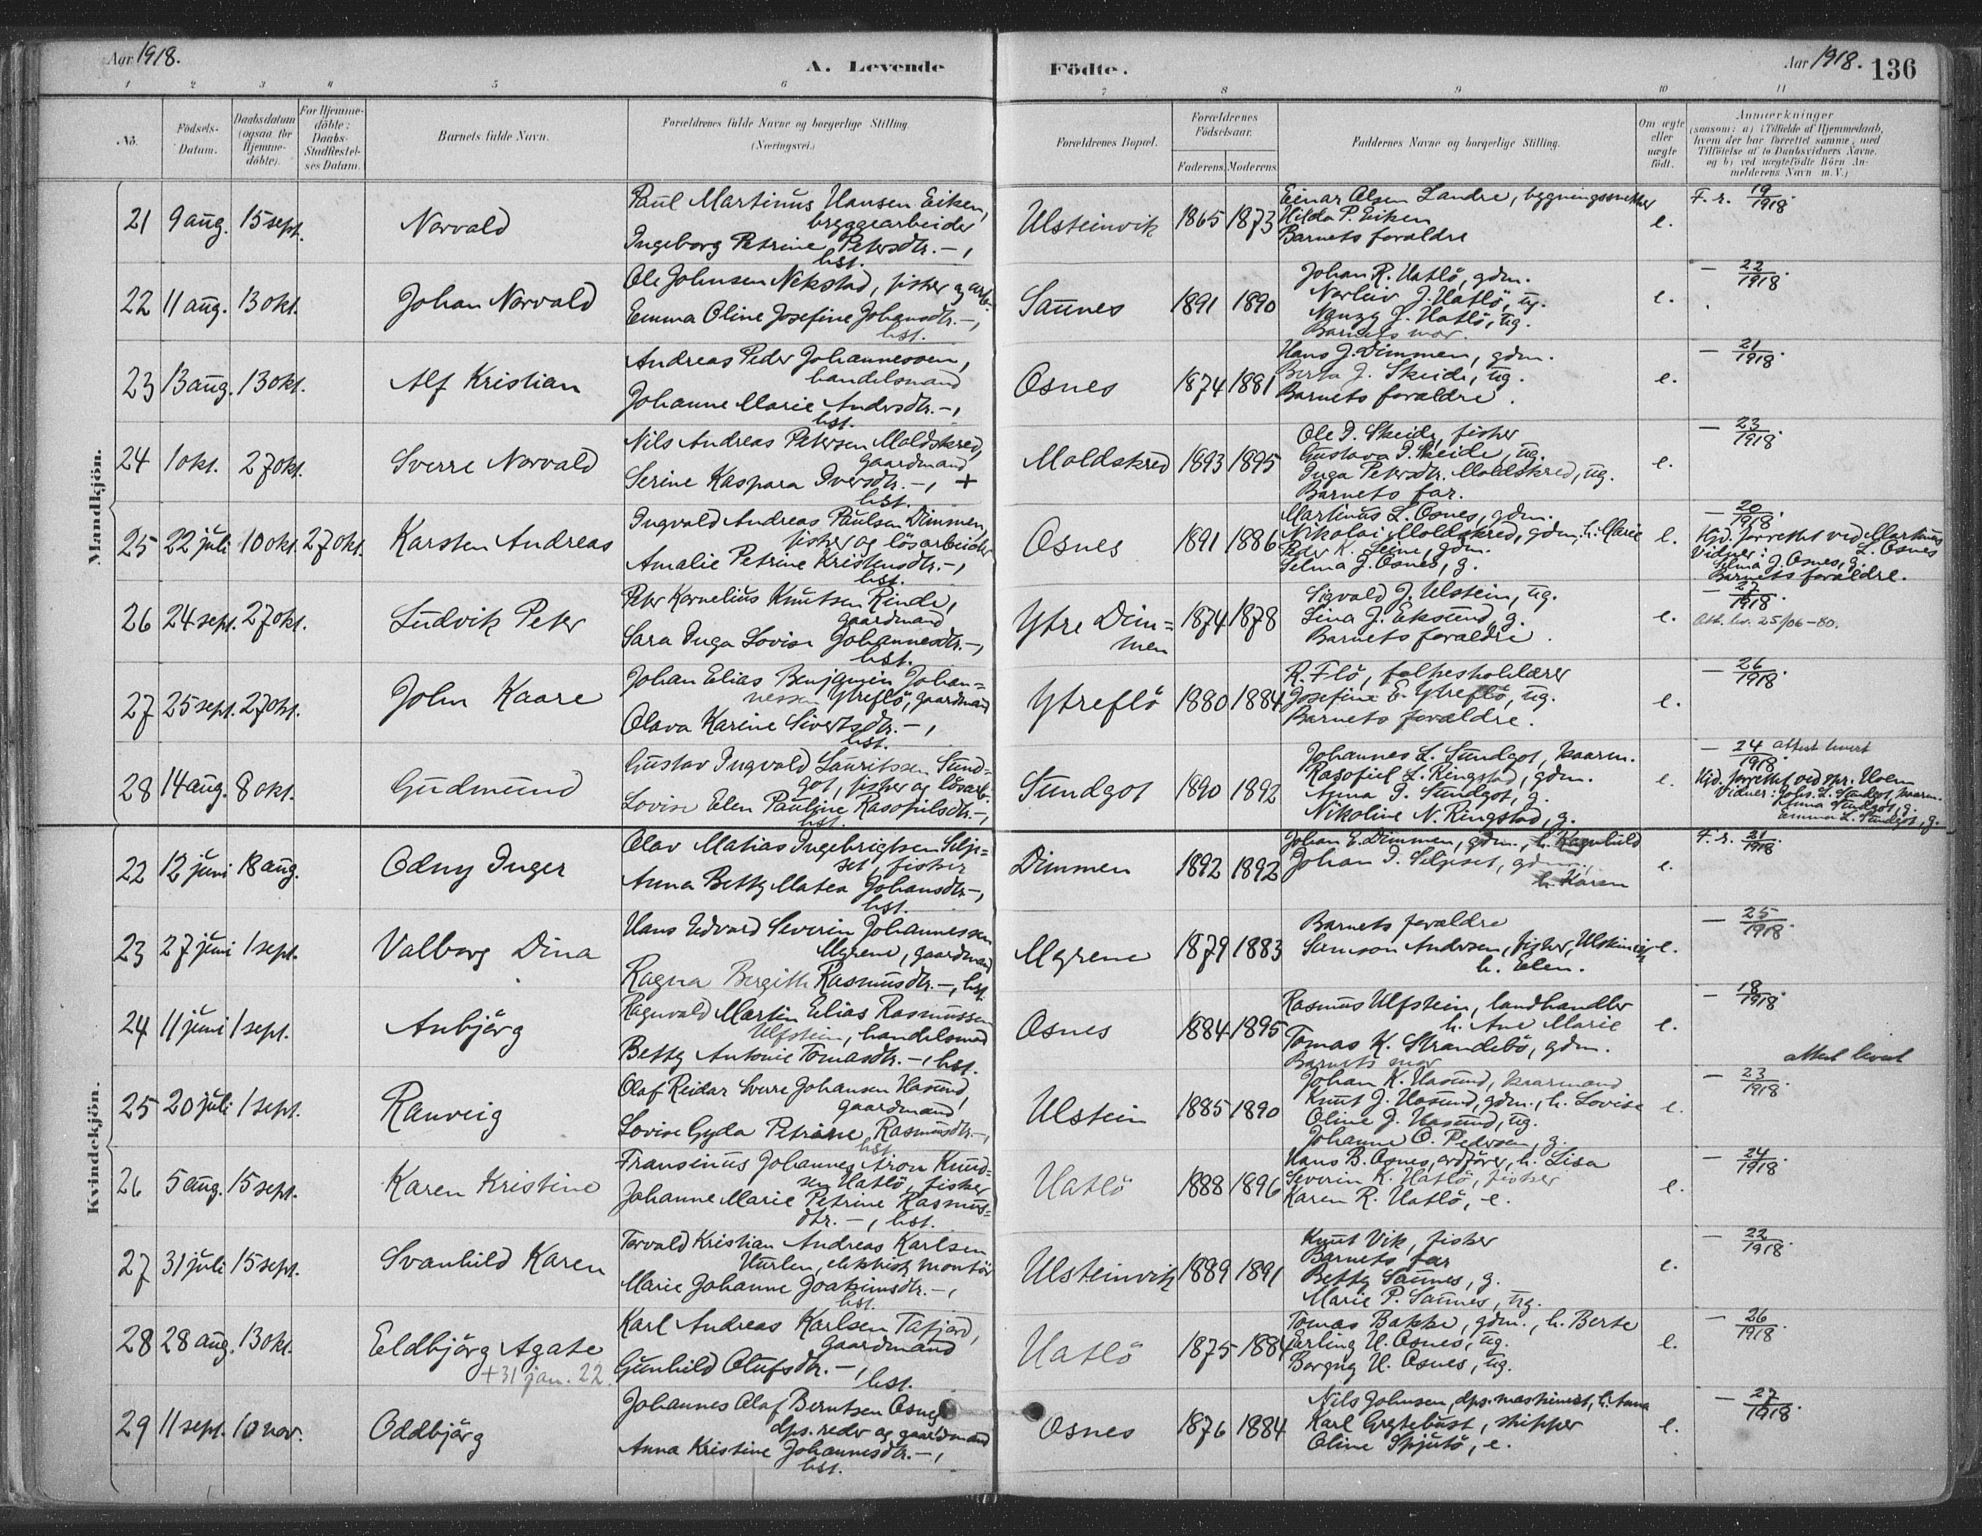 Aar 1918.
A. Levende
Födte.
Aar 1918. 136
1 2 3 4 5 6 7 8 9 10 11
No.
Födsels-
Datum.
Daabsdatum
(ogsaa for
Hjemme-
döbte).
For Hjemme-
döbte:
Daabs-
Stadfæstel-
ses Datum.
Barnets fulde Navn.
Forældrenes fulde Navne og borgerlige Stilling.
(Næringsvei.)
Forældrenes Bopæl.
Forældrenes
Födselsaar.
Faderens. Moderens.
Faddernes Navne og borgerlige Stilling.
Om ægte
eller
uægte
födt.
Anmærkninger
(saasom: a) i Tilfælde af Hjemmedaab,
hvem der har forrettet samme, med
Tilföielse af to Daabsvidners Navne,
og b) ved uægtefödte Börn An-
melderens Navn m. V.)
Mandkjön.
21 9 aug. 15 sept. Norvald
Paul Martinus Hansen Eiken,
bryggearbeider
Ingeborg Petrine Petersdtr. —,
hst.
Ulsteinvik 1865 1873
Einar Olsen Landre, bygningssnekker
Hilda P. Eiken
Barnets forældre
e. F. r. 19/1918.
22 11 aug. 13 okt. Johan Norvald
Ole Johnsen Nekstad, fisker og arb.
Emma Oline Josefine Johansdtr. —,
hst.
Saunes 1891 1890
Johan R. Hatlö, gdm.
Norleiv J. Hatlö, ug.
Nanzy J. Hatlö, ug.
Barnets mor.
e. — 22/1918.
23 13 aug. 13 okt. Alf Kristian
Andreas Peder Johannessen,
handelsmand
Johanne Marie Andersdtr. —,
hst.
Osnes 1874 1881
Hans J. Dimmen, gdm.
Berta J. Skeide, ug.
Barnets forældre.
e. — 21/1918.
24 1 okt. 27 okt. Sverre Norvald
Nils Andreas Petersen Moldskred,
gaardmand
Serine Kaspara Iversdtr. —, +
hst.
Moldskred 1893 1895
Ole I. Skeide, fisker
Gustava I. Skeide, ug.
Inga Petersdtr. Moldskred, ug.
Barnets far.
e. — 23/1918.
25 22 juli 10 okt. 27 okt. Karsten Andreas
Ingvald Andreas Paulsen Dimmen,
fisker og lösarbeider
Amalie Petrine Kristensdtr. —,
hst.
Osnes 1891 1886
Martinus L. Osnes, gdm.
Nikolai Moldskred, gdm., h. Marie
Peder K. Seine, gdm.
Selma J. Osnes, g.
e. — 20/1918.
Hjd. forrettet ved Martinus
Vidner: L. Osnes
Selma J. Osnes, g.
Barnets forældre.
26 24 sept. 27 okt. Ludvik Peter
Peter Kornelius Knutsen Rinde,
gaardmand
Sara Inga Lovise Johannesdtr. —,
hst.
Ytre Dim=
men 1874 1878
Sigvald J. Ulstein, ug.
Lina J. Eksund, g.
Barnets forældre.
e. — 27/1918.
Att. lev. 25/06-80.
27 25 sept. 27 okt. John Kaare
Johan Elias Benjamin Johan=
nessen Ytreflö, gaardmand
Olava Karine Sivertsdtr. —,
hst.
Ytreflö 1880 1884
R. Flö, folkeskolelærer
Josefine E. Ytreflö, ug.
Barnets forældre.
e. — 26/1918.
28 14 aug. 8 okt. Gudmund
Gustav Ingvald Lauritssen Sund=
got, fisker og lösarb.
Lovise Elen Pauline Rasofielsdtr. —,
hst.
Sundgot 1890 1892
Johannes L. Sundgot, kaarm.
Rasofiel L. Ringstad, gdm.
Anna I. Sundgot, g.
Nikoline N. Ringstad, g.
e. — 24/1918. attest levert
Hjd. forrettet ved spr. Holm
Vidner: Johs. L. Sundgot, kaarm.
Anna Sundgot, g.
Emma L. Sundgot, g.
Kvindekjön.
22 12 juni 18 aug. Odny Inger
Olav Matias Ingebrigtsen Selje=
set, fisker
Anna Betty Matea Johansdtr. —,
hst.
Dimmen 1892 1892
Johan E. Dimmen, gdm., h. Ragnhild
Johan I. Seljeset, gdm.,
h. Karen
e. F. r. 21/1918
23 27 juni 1 sept. Valborg Dina
Hans Edvard Severin Johannessen
Myrene, gaardmand
Ragna Bergith Rasmusdtr. —, hst.
Myrene 1879 1883
Barnets forældre
Samson Andersen, fisker, Ulsteinvik,
h. Elen.
e. — 25/1918.
24 11 juni 1 sept. Anbjörg
Ragnvald Martin Elias Rasmussen
Ulfstein, handelsmand
Betty Antonie Tomasdtr. —, hst.
Osnes 1884 1895
Rasmus Ulfstein, landhandler
h. Ane Marie
Tomas K. Strandebö, gdm.
Barnets mor
e. — 18/1918.
attest levert
25 20 juli 1 sept. Ranveig
Olaf Reidar Sverre Johansen Hasund,
gaardmand
Lovise Gyda Petrine Rasmusdtr. —,
hst.
Ulstein 1885 1890
Johan K. Hasund, kaarmand
Knut J. Hasund, gdm., h. Lovise
Oline J. Hasund, ug.
Johanne O. Pedersen, g.
e. — 23/1918.
26 5 aug. 15 sept. Karen Kristine
Fransinus Johannes Aron Knud=
sen Hatlö, fisker
Johanne Marie Petrine Rasmus=
dtr. —, hst.
Hatlö 1888 1896
Hans B. Osnes, ordförer, h. Lisa
Severin K. Hatlö, fisker
Karen R. Hatlö, e.
e. — 24/1918.
27 31 juli 15 sept. Svanhild Karen
Torvald Kristian Andreas Karlsen
Hurlen, elektrisk montör
Marie Johanne Joakimsdtr. —,
hst.
Ulsteinvik 1889 1891
Knut Vik, fisker
Barnets far
Betty Saunes, g.
Marie P. Saunes, ug.
e. — 22/1918.
28 28 aug. 13 okt. Eldbjörg Agate
+ 31 jan. 22.
Karl Andreas Karlsen Tafjord,
gaardmand
Gunhild Olufsdtr. —,
hst.
Hatlö 1875 1884
Tomas Bakke, gdm., h. Berte
Erling H. Osnes, ug.
Borgny H. Osnes, ug.
e. — 26/1918.
29 11 sept. 10 nov. Oddbjörg
Johannes Olaf Berntsen Osnes
dps. reder og gaardmand
Anna Kristine Johannesdtr. —,
hst.
Osnes 1876 1884
Nils Johnsen, dps. maskinist, h. Anna
Karl Gretebust, skipper
Oline Spjutö, e.
e. — 27/1918.